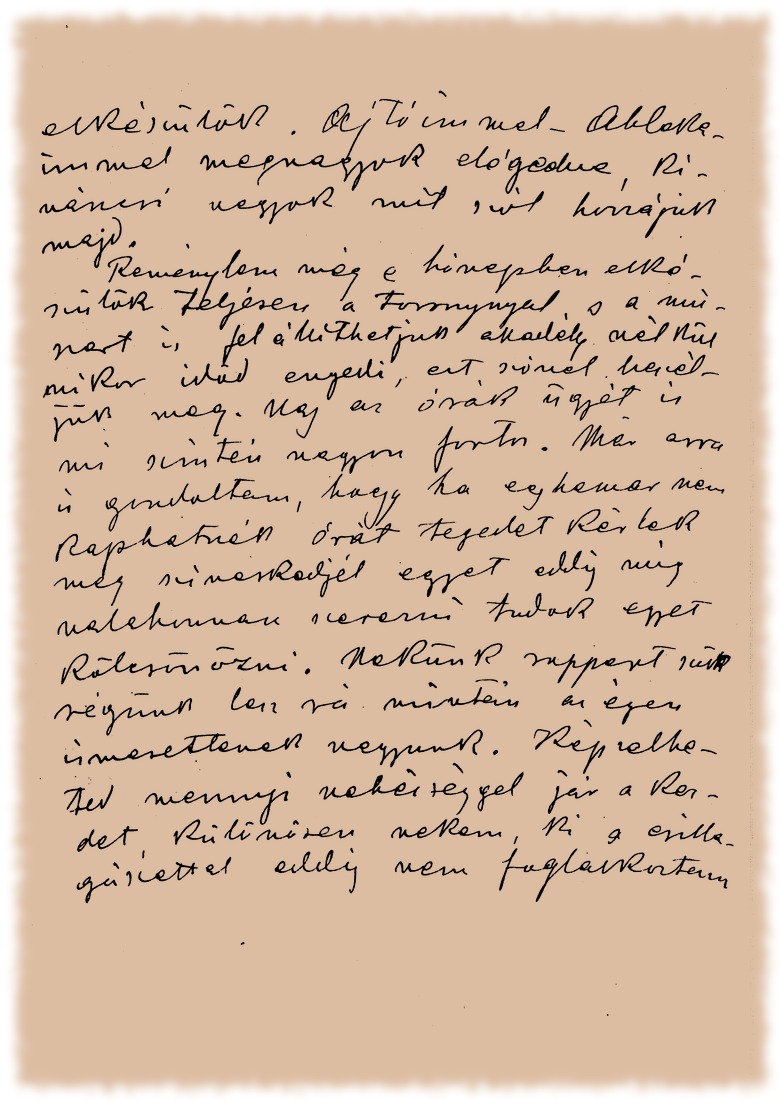 elkésűlök. Ajtóimmel - Ablaka-
immel megvagyok elégedve, ki-
váncsi vagyok mit szól hozzájuk
majd.
Reménylem még e hónapben elké-
szűlök teljesen a toronynyal, s a mű-
szert is felállíthatjuk akadály nélkűl
mikor időd engedi, ezt sónel beszél-
jük meg. Ugy az órák ügyét is
mi szintén nagyon fontos. Már arra
is gondoltam, hogy ha egyhamar nem
kaphatnék órát tégedet kérlek
meg sziveskedjél egyet addig mig
valahonnan szerezni tudok egyet
kölcsönözni. Nekünk support szük
ségünk lesz rá miután az égen
ismeretlenek vagyunk. Képzelhe-
ted mennyi nehézséggel jár a kez-
det, különösen nekem, ki a csilla-
gászattal eddig nem foglalkoztam